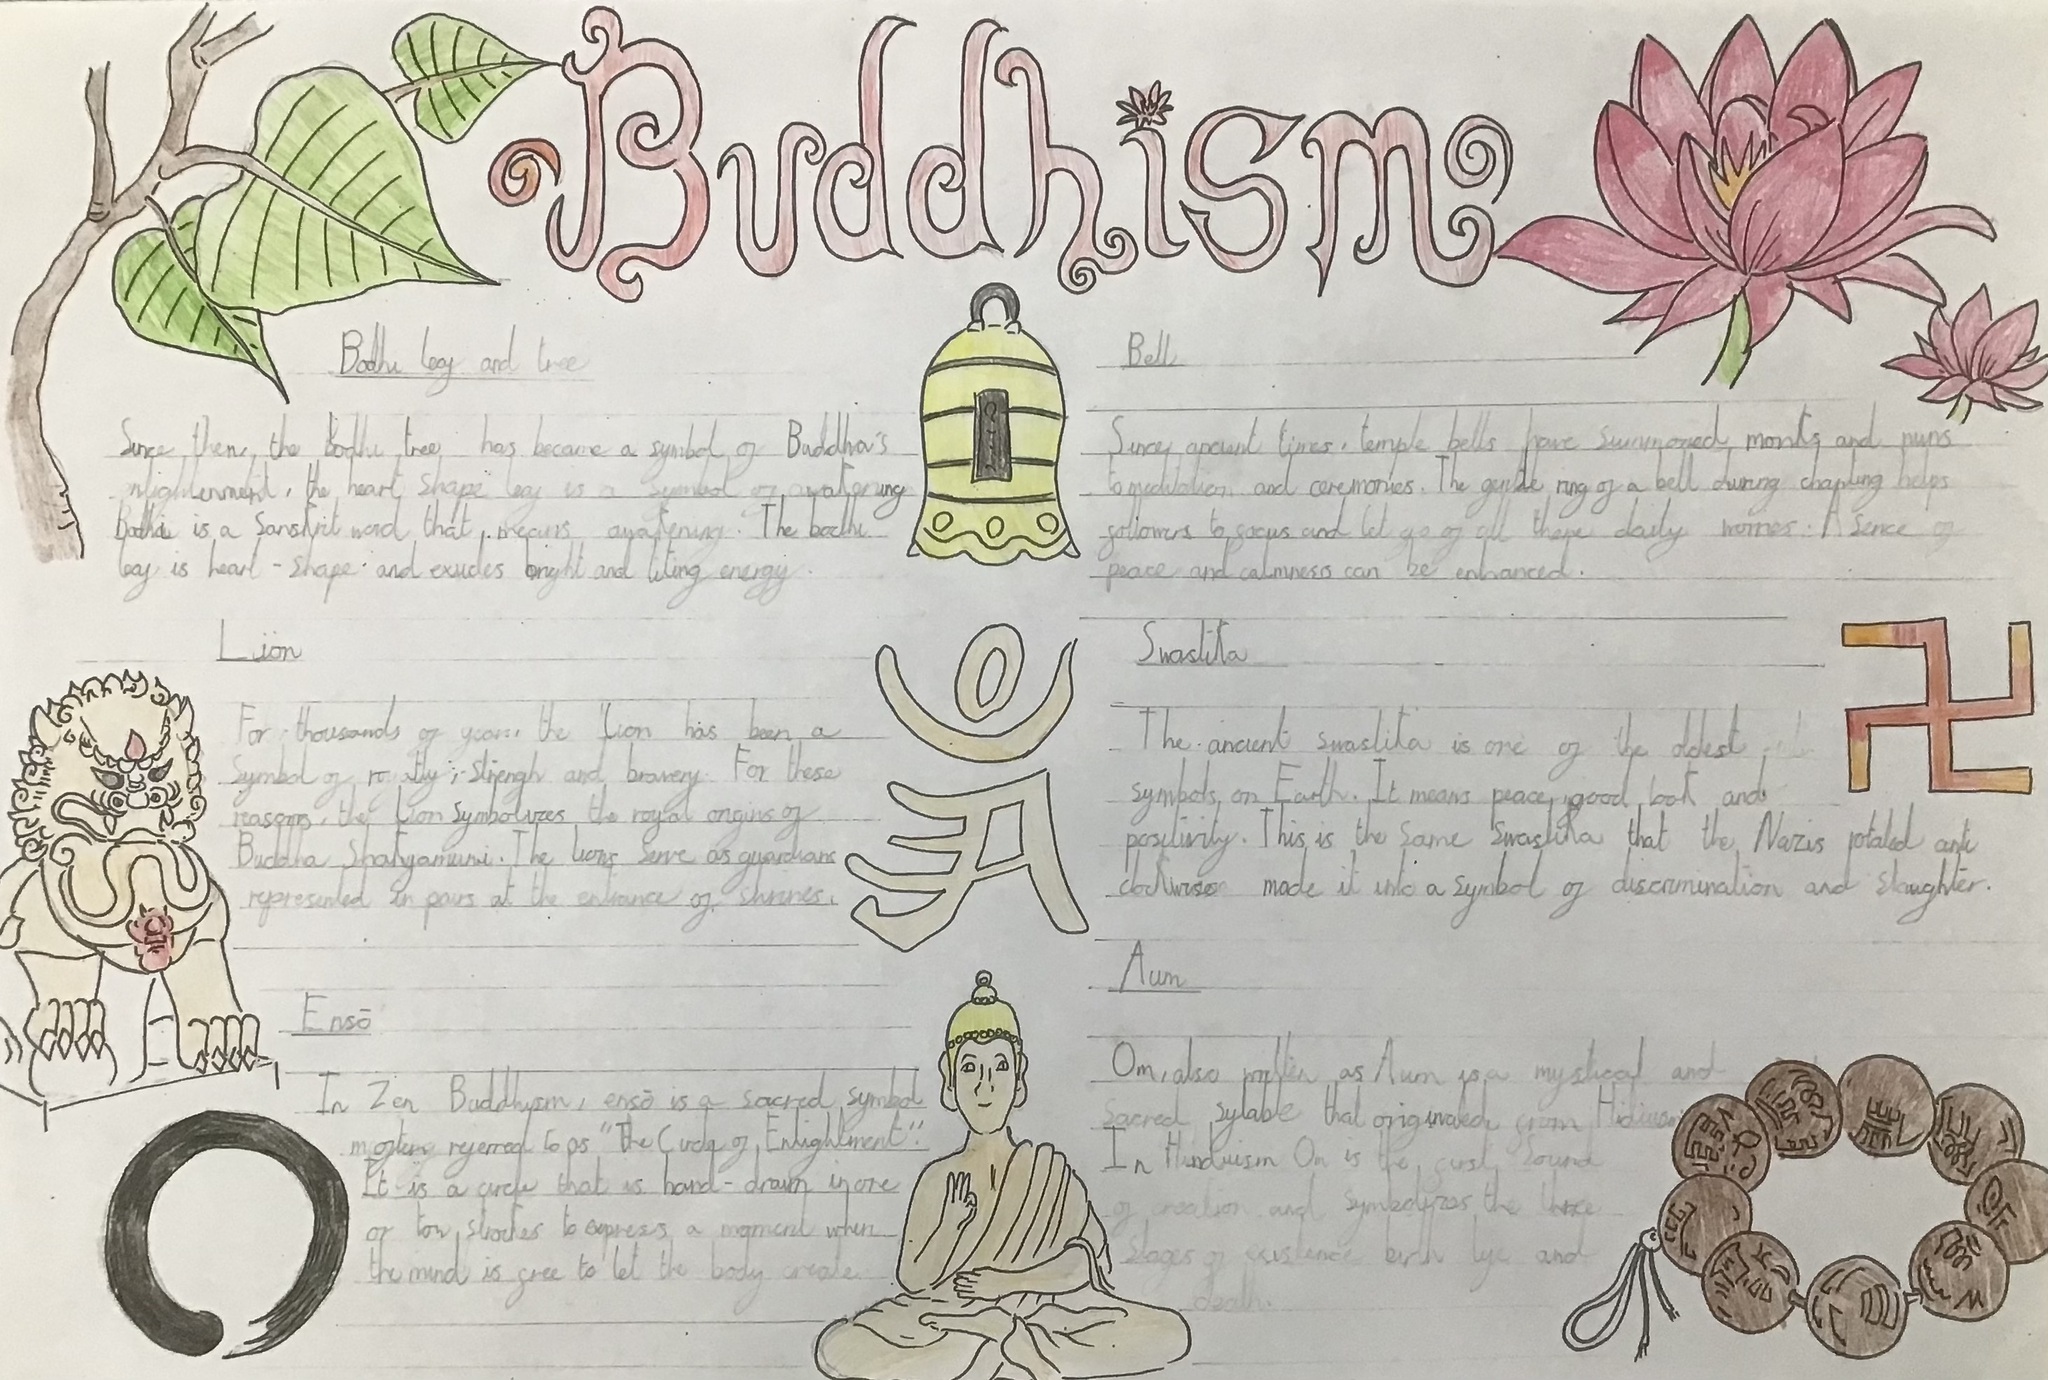 Buddhism
Bodhi leaf and tree
Since then, the bodhi tree has become a symbol of Buddha's
enlightenment, the heart shape leaf is a symbol of awakening
Bodhi is a Sanskrit word that means awakening. The bodhi
leaf is heart-shape and exudes bright and lifing energy.
Lion
For thousands of years, the lion has been a
symbol of royalty, strengh and bravery. For these
reasons, the lion symbolizes the royal origins of
Buddha Shakyamuni. The lions serve as guardians
represented in pairs at the entrance of shrines.
Ensō
In Zen Buddhism, ensō is a sacred symbol
mosten referred to as "The Circle of Enlightment".
It is a circle that is hand-drawn in one
or tow strokes to express a moment when
the mind is free to let the body create.
Bell
Since ancient times, temple bells have summoned monks and nuns
to meditation and ceremonies. The gentle ring of a bell during chanting helps
followers to focus and let go of all there daily worries. A sence of
peace and calmness can be enhanced.
Swastika
The ancient swastika is one of the oldest
symbols on Earth. It means peace, good look and
positivity. This is the same Swastika that the Nazis rotated anti
clockwise made it into a symbol of discrimination and slaughter.
Aum
Om, also written as Aum is a mystical and
sacred sylable that originated from
In Hinduism Om is the first sound
of creation and symbolizes the three
stages of existence birth life and
death.